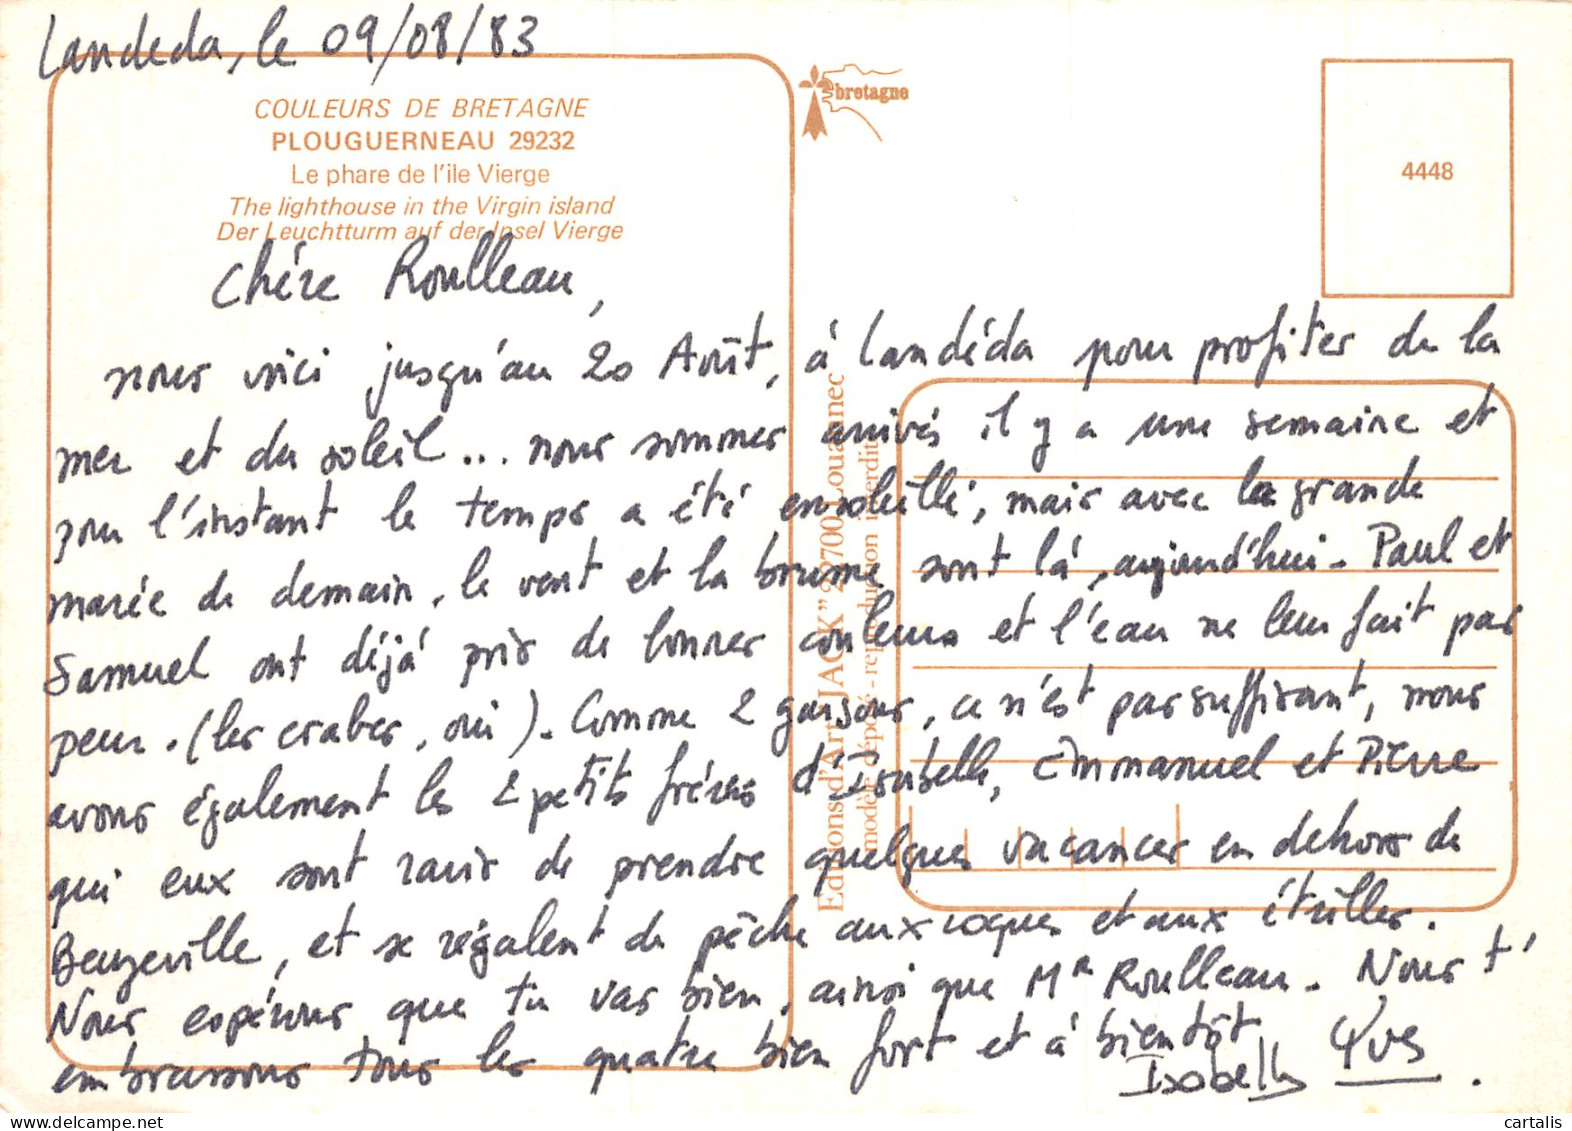 Landeda, le 09/08/83
COULEURS DE BRETAGNE
PLOUGUERNEAU 29232
Le phare de l'ile Vierge
The lighthouse in the Virgin island
Der Leuchtturm auf der Insel Vierge
bretagne
4448
Chère Roulleau,
nous voici jusqu'au 20 Août, à Landéda pour profiter de la
mer et du soleil... nous sommes arrivés il y a une semaine et
pour l'instant le temps a été ensoleillé, mais avec la grande
marée de demain, le vent et la brume sont là, aujourd'hui - Paul et
Samuel ont déjà pris de bonnes couleurs et l'eau ne leur fait pas
peur. (les crabes, oui). Comme 2 garçons, ce n'est pas suffisant, nous
avons également les 2 petits frères d'Isabelle, Emmanuel et Pierre
qui eux sont ravis de prendre quelques vacances en dehors de
Beuzeville, et se régalent de pêche aux coques et aux étrilles.
Nous espérons que tu vas bien, ainsi que Mr Roulleau. Nous t'
embrassons tous les quatre bien fort et à bientôt
Isabelle Yves
Editions d'Art "JACK" 22700 Louannec
modèle déposé - reproduction interdite
cartalis